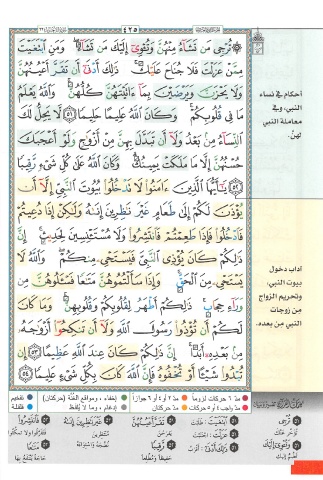 ٤٢٥
۞ تُرْجِي مَن تَشَآءُ مِنْهُنَّ وَتُـْٔوِيٓ إِلَيْكَ مَن تَشَآءُ وَمَنِ ٱبْتَغَيْتَ
مِمَّنْ عَزَلْتَ فَلَا جُنَاحَ عَلَيْكَ ذَٰلِكَ أَدْنَىٰٓ أَن تَقَرَّ أَعْيُنُهُنَّ
وَلَا يَحْزَنَّ وَيَرْضَيْنَ بِمَآ ءَاتَيْتَهُنَّ كُلُّهُنَّ وَٱللَّهُ يَعْلَمُ
مَا فِي قُلُوبِكُمْ وَكَانَ ٱللَّهُ عَلِيمًا حَلِيمًا ٥١ لَّا يَحِلُّ لَكَ
ٱلنِّسَآءُ مِنۢ بَعْدُ وَلَآ أَن تَبَدَّلَ بِهِنَّ مِنْ أَزْوَٰجٍ وَلَوْ أَعْجَبَكَ
حُسْنُهُنَّ إِلَّا مَا مَلَكَتْ يَمِينُكَ وَكَانَ ٱللَّهُ عَلَىٰ كُلِّ شَيْءٍ رَّقِيبًا
٥٢ يَٰٓأَيُّهَا ٱلَّذِينَ ءَامَنُوا۟ لَا تَدْخُلُوا۟ بُيُوتَ ٱلنَّبِيِّ إِلَّآ أَن
يُؤْذَنَ لَكُمْ إِلَىٰ طَعَامٍ غَيْرَ نَٰظِرِينَ إِنَىٰهُ وَلَٰكِنْ إِذَا دُعِيتُمْ
فَٱدْخُلُوا۟ فَإِذَا طَعِمْتُمْ فَٱنتَشِرُوا۟ وَلَا مُسْتَـْٔنِسِينَ لِحَدِيثٍ إِنَّ
ذَٰلِكُمْ كَانَ يُؤْذِي ٱلنَّبِيَّ فَيَسْتَحْيِۦ مِنكُمْ وَٱللَّهُ لَا
يَسْتَحْيِۦ مِنَ ٱلْحَقِّ وَإِذَا سَأَلْتُمُوهُنَّ مَتَٰعًا فَسْـَٔلُوهُنَّ مِن
وَرَآءِ حِجَابٍ ذَٰلِكُمْ أَطْهَرُ لِقُلُوبِكُمْ وَقُلُوبِهِنَّ وَمَا كَانَ
لَكُمْ أَن تُؤْذُوا۟ رَسُولَ ٱللَّهِ وَلَآ أَن تَنكِحُوٓا۟ أَزْوَٰجَهُۥ
مِنۢ بَعْدِهِۦٓ أَبَدًا إِنَّ ذَٰلِكُمْ كَانَ عِندَ ٱللَّهِ عَظِيمًا ٥٣ إِن
تُبْدُوا۟ شَيْـًٔا أَوْ تُخْفُوهُ فَإِنَّ ٱللَّهَ كَانَ بِكُلِّ شَيْءٍ عَلِيمًا ٥٤
أحكام في نساء
النبي، وفي
معاملة النبي
لهنّ.
آداب دخول
بيوت النبي،
وتحريم الزواج
من زوجات
النبي من بعده.